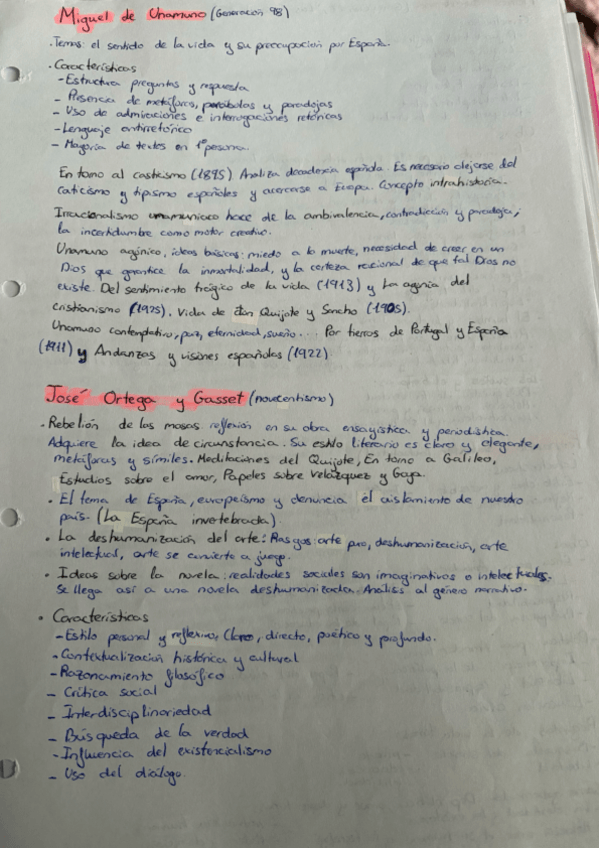 Miguel de Unamuno (Generación 98)
· Temas: el sentido de la vida y su preocupación por España.
· Características
- Estructura preguntas y respuesta
- Presencia de metáforas, parábolas y paradojas
- Uso de admiraciones e interrogaciones retóricas
- Lenguaje antirretórico
- Mayoría de textos en 1ª persona.
En torno al casticismo (1895) Analiza decadencia española. Es necesario alejarse del
caticismo y tipismo españoles y acercarse a Europa. Concepto intrahistoria.
Irracionalismo unamuniano nace de la ambivalencia, contradicción y paradoja;
la incertidumbre como motor creativo.
Unamuno agónico, ideas básicas: miedo a la muerte, necesidad de creer en un
Dios que garantice la inmortalidad, y la certeza racional de que tal Dios no
existe. Del sentimiento trágico de la vida (1913) y La agonía del
cristianismo (1925). Vida de Don Quijote y Sancho (1905).
Unamuno contemplativo, paz, eternidad, sueño... Por tierras de Portugal y España
(1911) y Andanzas y visiones españolas (1922).
José Ortega y Gasset (novecentismo)
· Rebelión de las masas reflexión en su obra ensayística y periodística.
Adquiere la idea de circunstancia. Su estilo literario es claro y elegante,
metáforas y símiles. Meditaciones del Quijote, En torno a Galileo,
Estudios sobre el amor, Papeles sobre Velázquez y Goya.
· El tema de España, europeísmo y denuncia el aislamiento de nuestro
país. (La España invertebrada).
· La deshumanización del arte: Rasgos: arte puro, deshumanización, arte
intelectual, arte se convierte a juego.
· Ideas sobre la novela: realidades sociales son imaginativos o intelectuales.
Se llega así a una novela deshumanizada. Análisis al género narrativo.
· Características
- Estilo personal y reflexivo, Claro, directo, poético y profundo.
- Contextualización histórica y cultural
- Razonamiento filosófico
- Crítica social
- Interdisciplinariedad
- Búsqueda de la verdad
- Influencia del existencialismo
- Uso del diálogo.